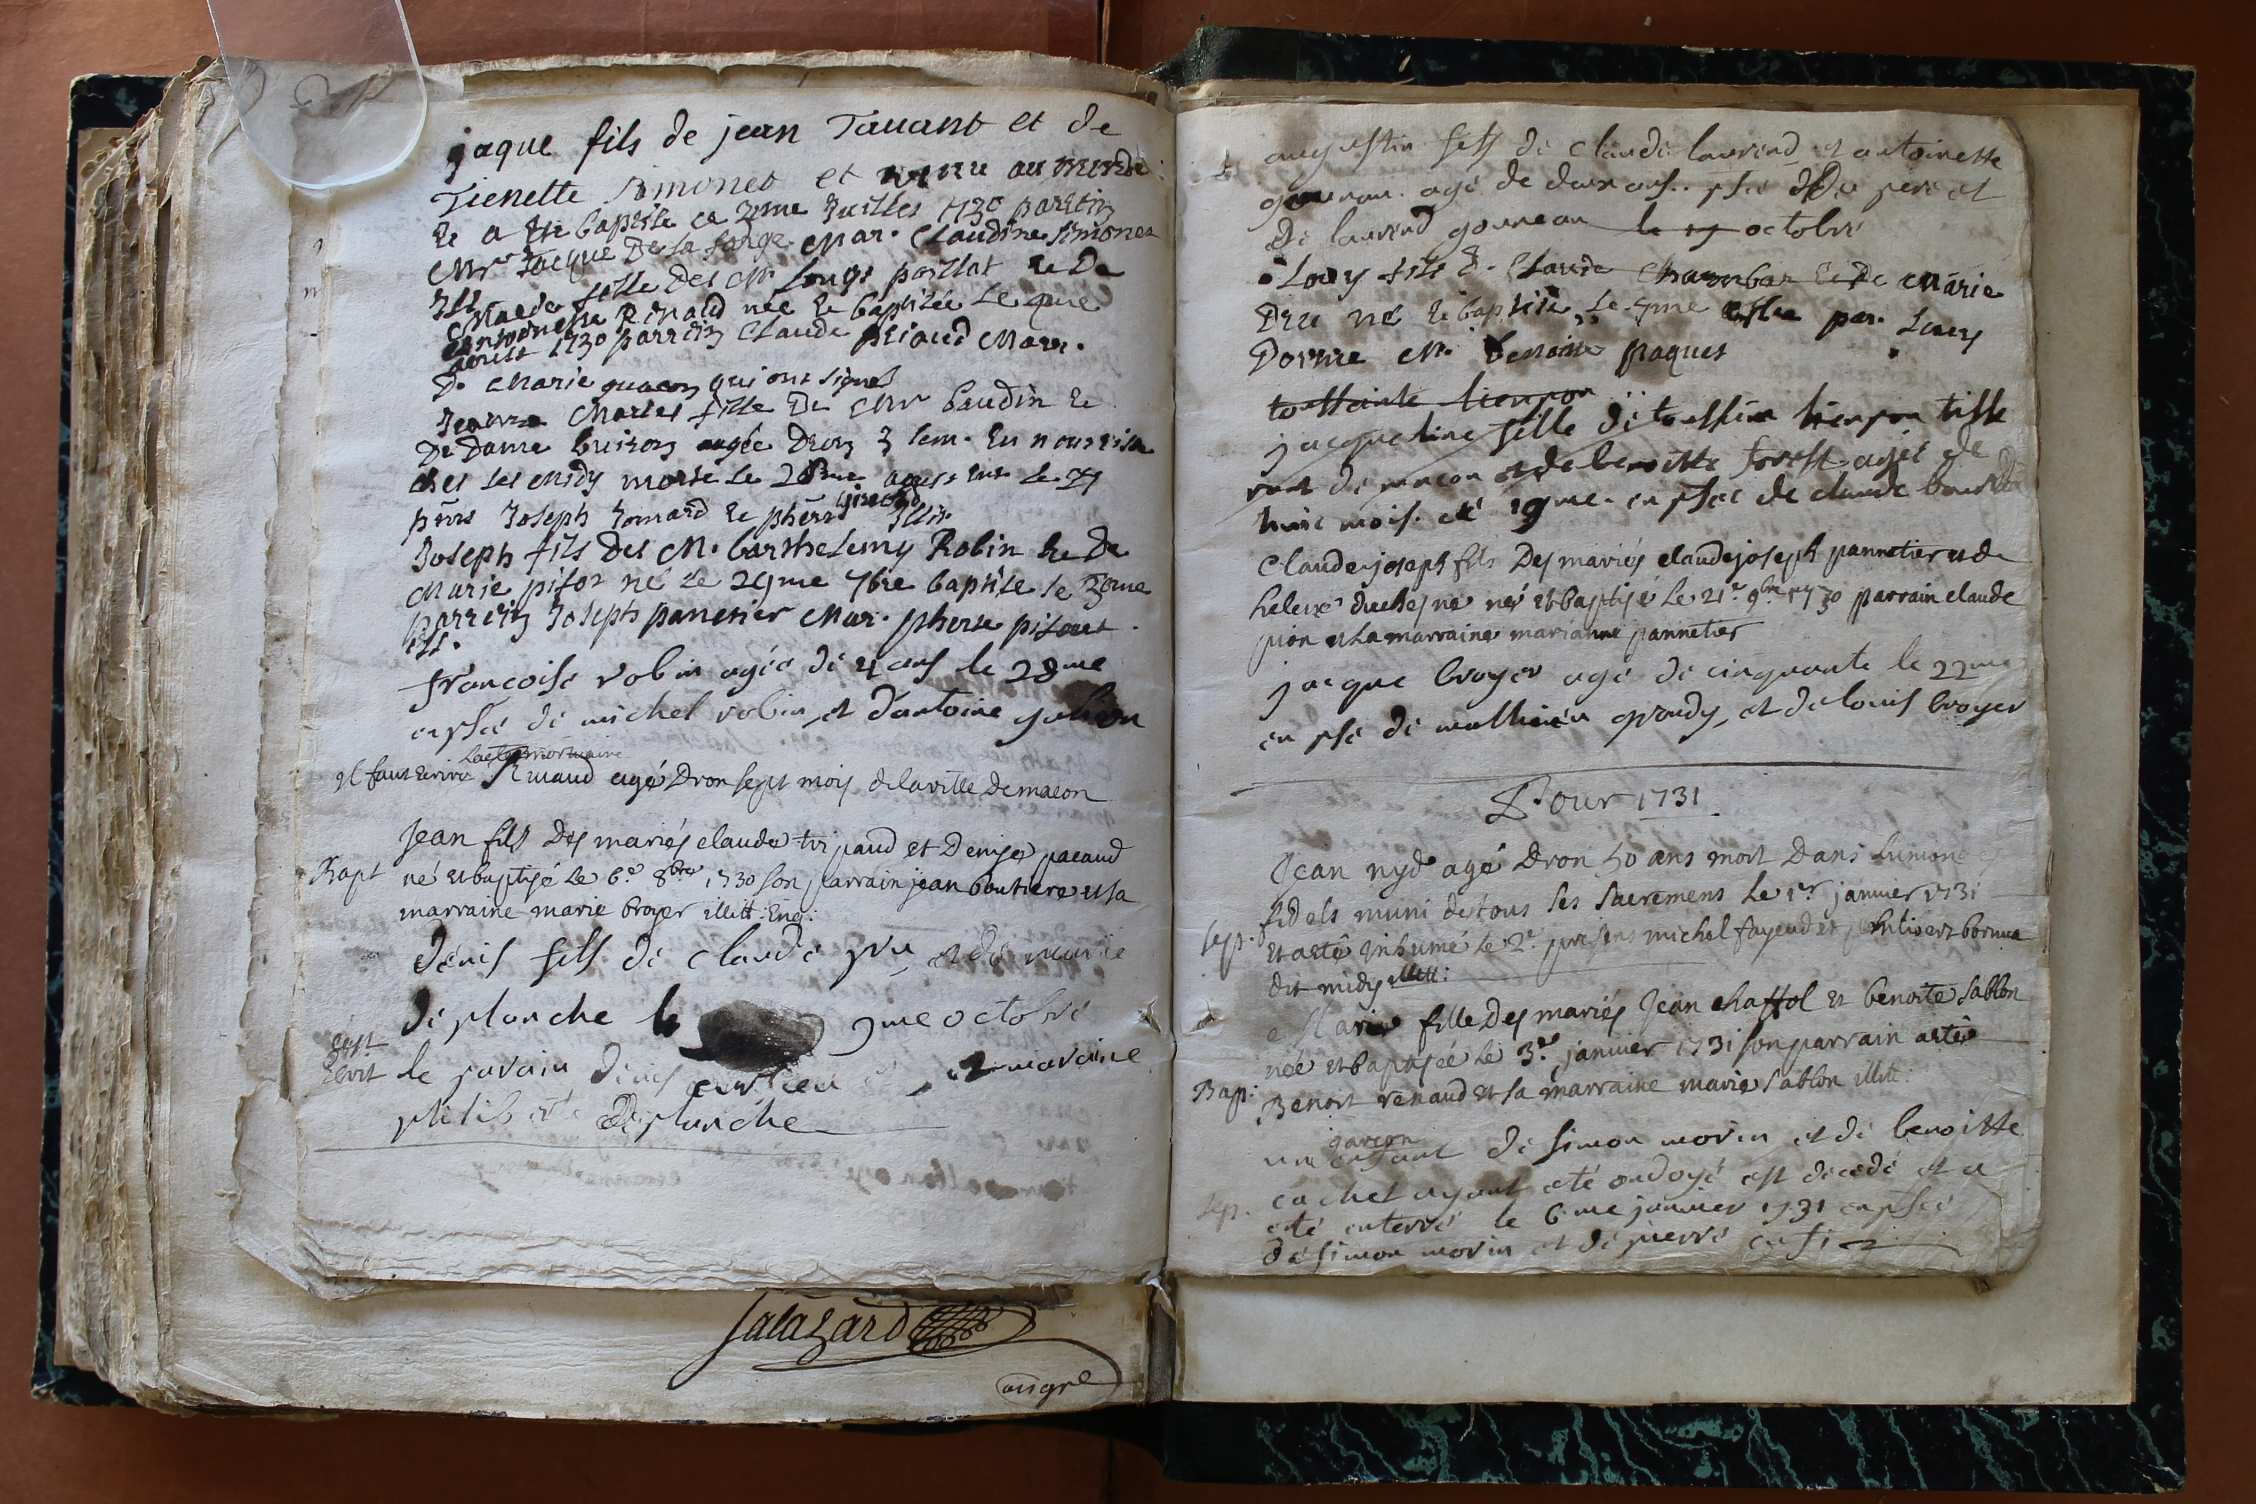 jaque fils de jean Tavant et de
Tienette simonet et venu au monde
et a ete baptise ce 2me Juillet 1730 parrein
Mrs Jacque De la forge Mar. Claudine simonet
Ill.
Marie fille des M. Louys poillat et De
antoinette Renaud née et baptisée le 9me
aoust 1730 parrein Claude priaud Marr.
D. Marie guacon qui ont signes
Jeanne Marie fille De Mr baudin et
De Dame buiron augée Dron 3 sem. En nourrisse
ches les Midy morte le 26me aoust ent. le 27
pnts Joseph Jomard et pherrt girard Illit.
Joseph fils Des M. barthelemy Robin et De
Marie pitot né le 29me 7bre baptise le 30me
parrein Joseph panetier Mar. pherte pitouet
Ill.
francoise robin agée de 4 ans le 28me
en psce de michel robin et d'antoine
Il faut ecrire Lacte mortuaire
Renaud agé Dron sept mois de la ville de macon
Jean fils Des mariés claude tripaud et Denise pacaud
Bapt né et baptisé le 6e 8bre 1730 son parrain jean boutiere et sa
marraine marie broyer illitt: Enq:
denis fils de claude gru et de marie
de planche le 9me octobre
le parain denis et maraine
philiberte deplanche
Salazard
augustin fils de claude laurend et antoinette
gounau agé de deux ans psce du pere et
de laurend gouneau le 17 octobre
Louy fils d. Claude Chambar et De Marie
Dru né et baptise le 5me par. Louy
Dorme M. benoite paques
toussainte tienpon
jacqueline fille de toussain tienpon tisse
rant de macon et de benoitte forest agée de
huic mois. le 19me. en psce de claude
Claude joseph fils Des mariés claude joseph pannetier et de
helene duchesne né et baptisé le 21e 9bre 1730 parrain claude
pion et la marraine marianne pannetier
jacque broyer agé de cinquante le 22me
en psce de mathieu grandy et de louis broyer
Pour 1731
Jean nyd agé Dron 50 ans mort Dans lunion
fidels muni de tous ses sacremens le 1er janvier 1731
sep. et a eté inhumé le 2e presens michel fayend et philibert bornua
dit midy illitt:
Marie fille Des mariés Jean chaffol et benoite sablon
née et baptisée le 3e janvier 1731 son parrain a eté
Bap: Benoit renaud et sa marraine marie sablon illitt
garcon
un enfant de simon morin et de benoitte
sep. cachet ayant eté ondoyé est decedé et a
eté enterré le 6me janvier 1731 en psce
de simon morin et de pierre